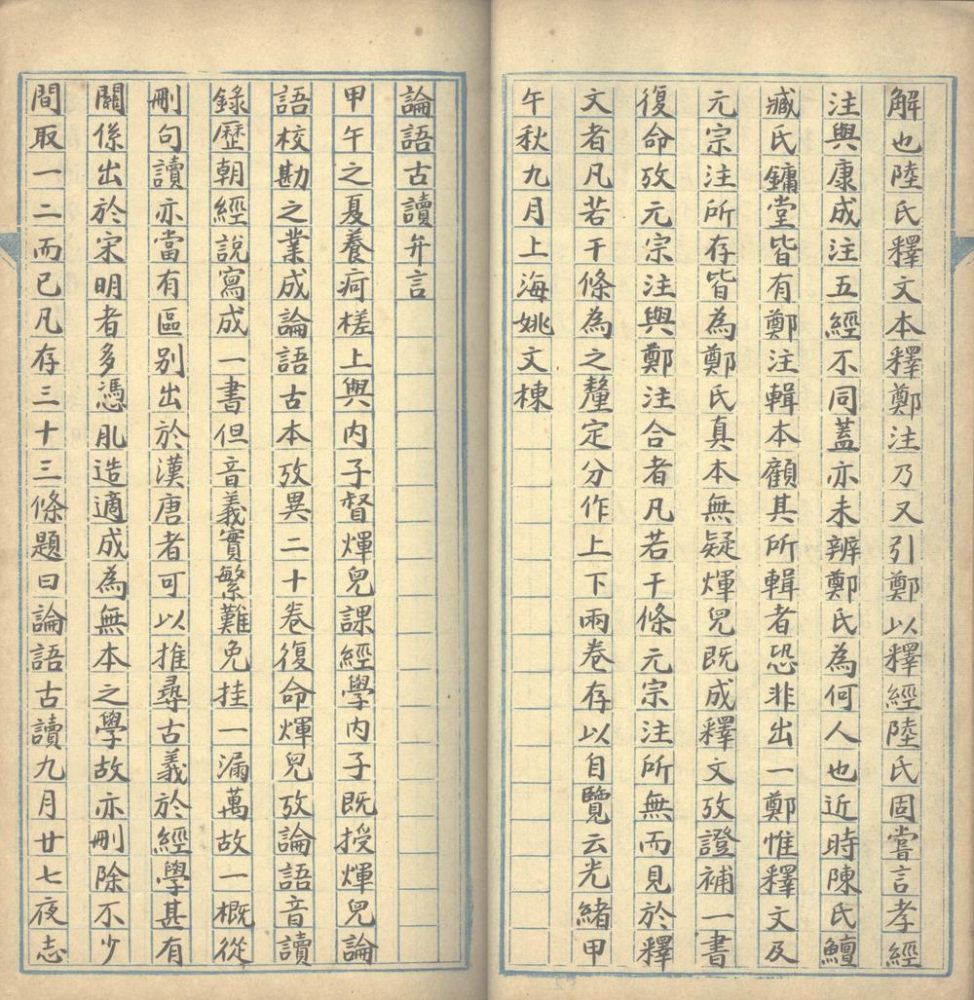 解也陸氏釋文本釋鄭注乃又引鄭以釋經陸氏固嘗言孝經
注與康成注五經不同蓋亦未辨鄭氏為何人也近時陳氏鱣
臧氏鏞堂皆有鄭注輯本顧其所輯者恐非出一鄭惟釋文及
元宗注所存皆為鄭氏真本無疑煇兒既成釋文攷證補一書
復命攷元宗注與鄭注合者凡若干條元宗注所無而見於釋
文者凡若干條為之釐定分作上下兩卷存以自覽云光緒甲
午秋九月上海姚文棟
論語古讀弁言
甲午之夏養疴槎上與內子督煇兒課經學內子既授煇兒論
語校勘之業成論語古本攷異二十卷復命煇兒攷論語音讀
錄歷朝經說寫成一書但音義實繁難免挂一漏萬故一概從
刪句讀亦當有區別出於漢唐者可以推尋古義於經學甚有
關係出於宋明者多憑肊造適成為無本之學故亦刪除不少
間取一二而已凡存三十三條題曰論語古讀九月廿七夜志